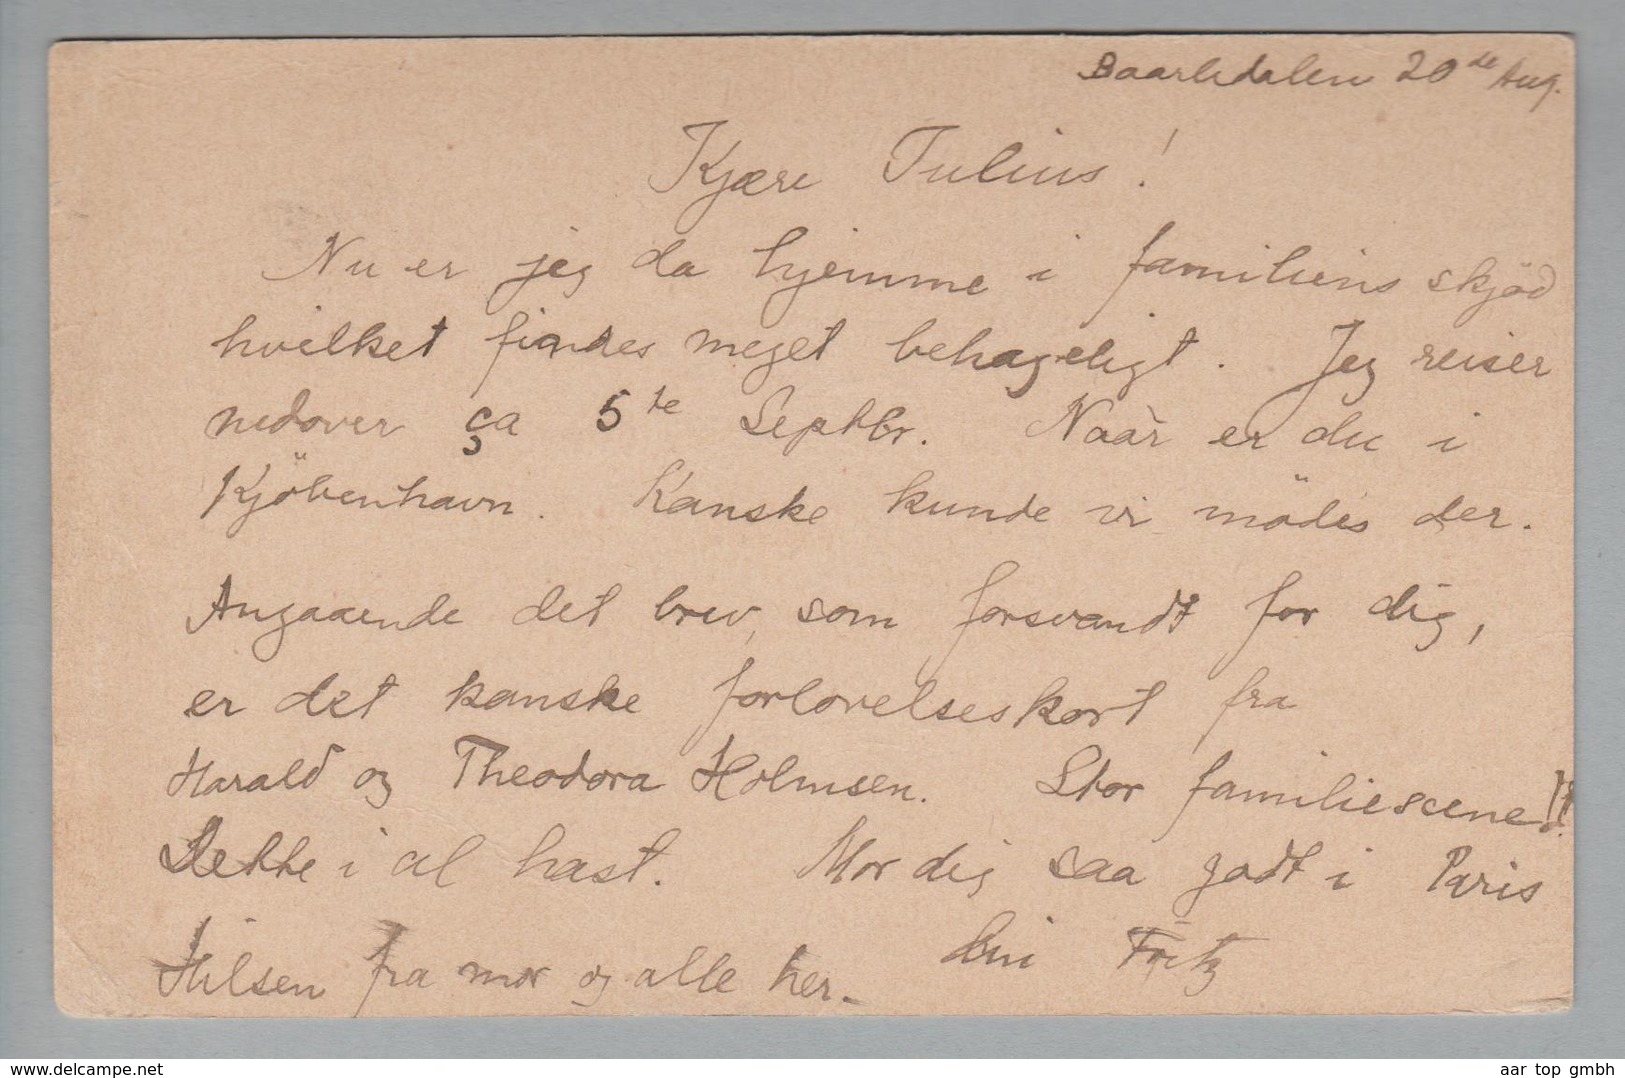 Baarlidalen 20de Aug.
Kjære Julius!
Nu er jeg da hjemme i familiens skjöd
hvilket findes meget behageligt. Jeg reiser
nedover ça 5te Septbr. Naar er du i
Kjöbenhavn. Kanske kunde vi mödes der.
Angaaende det brev, som forsvandt for dig,
er det kanske forlovelseskort fra
Harald og Theodora Holmsen. Stor familiescene!!
Dette i al hast. Mor dig saa godt i Paris
din Fritz
Hilsen fra mor og alle her.
www.delcampe.net
aar top gmbh